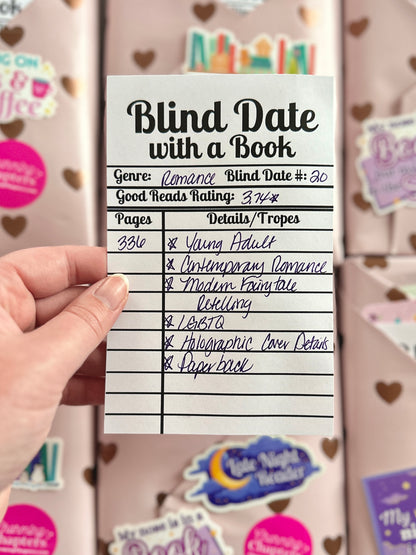 ON
& Coffee
Blind Date
with a Book
Genre: Romance Blind Date #: 20
Good Reads Rating: 3.74☆
Pages Details/Tropes
336 ☆ Young Adult
☆ Contemporary Romance
☆ Modern Fairytale
Retelling
☆ LGBTQ
☆ Holographic Cover Details
☆ Paperback
Late Night
Reader
My name is
Book